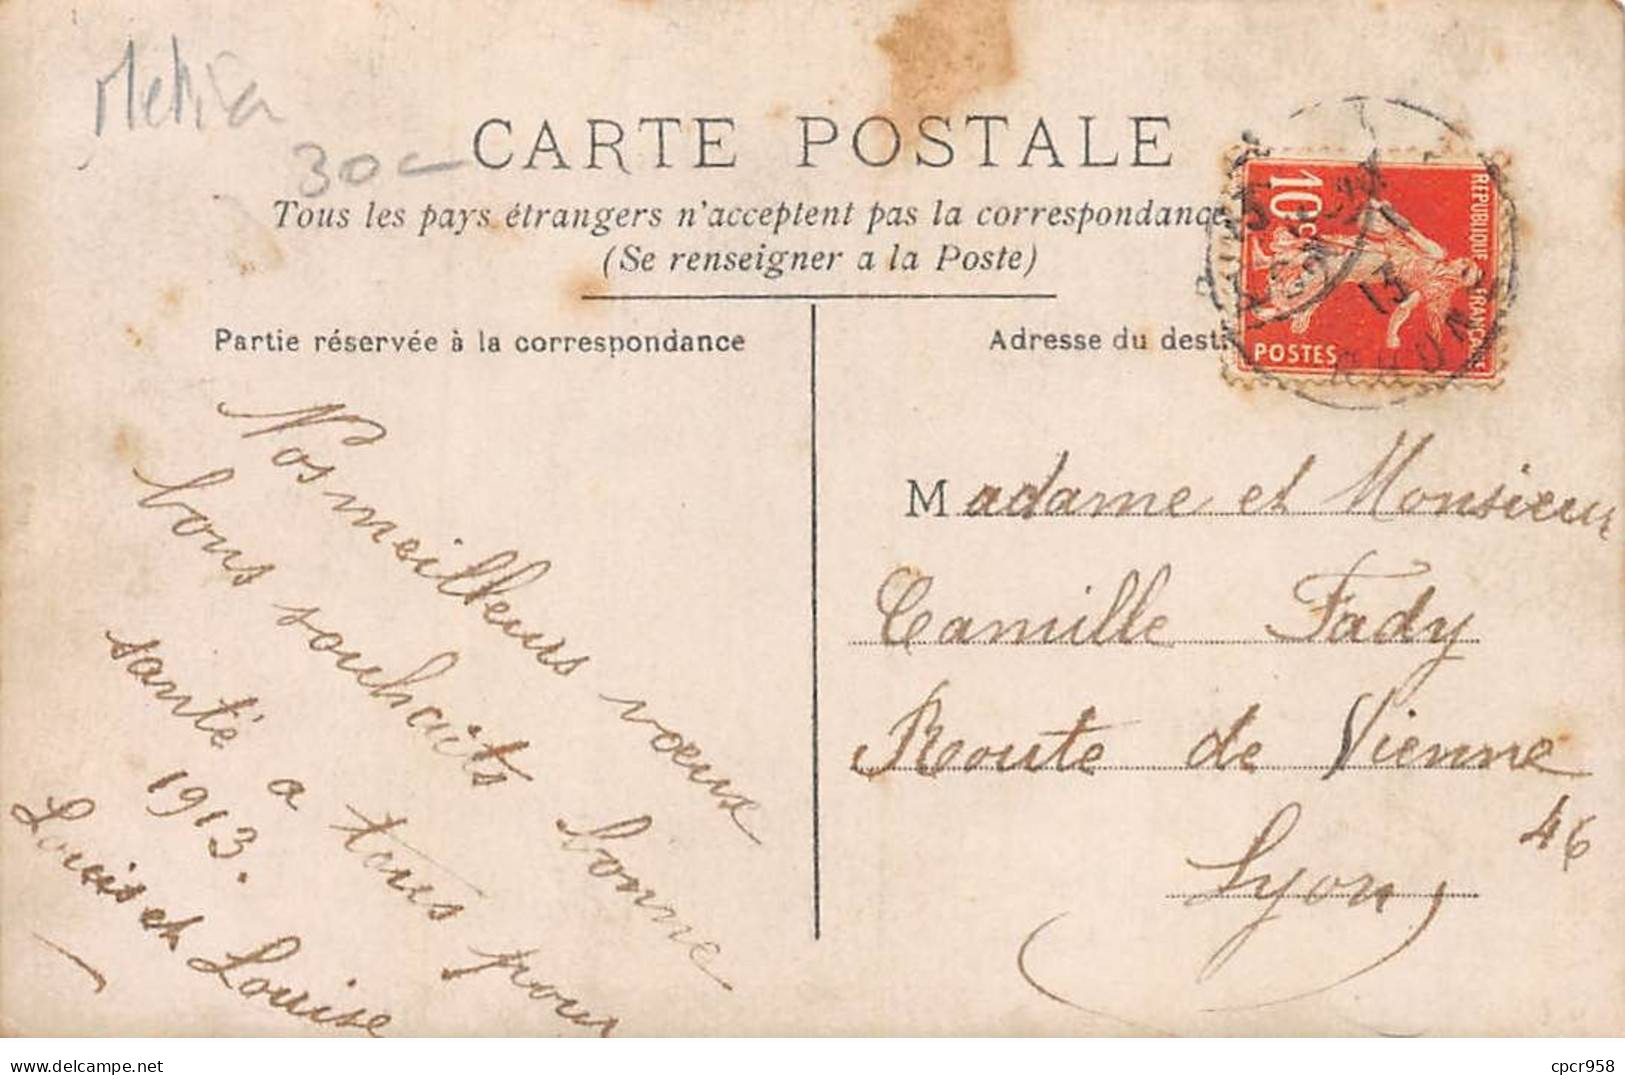 30
CARTE POSTALE
Tous les pays étrangers n'acceptent pas la correspondance
(Se renseigner a la Poste)
Partie réservée à la correspondance
Nos meilleurs vœux
vous souhaits bonne
santé a tous pour
1913.
Louis et Louise
Adresse du desti
10c
REPUBLIQUE FRANÇAISE
POSTES
13
Madame et Monsieur
Camille Fady
Route de Vienne
46
Lyon
delcampe.net
cpcr958